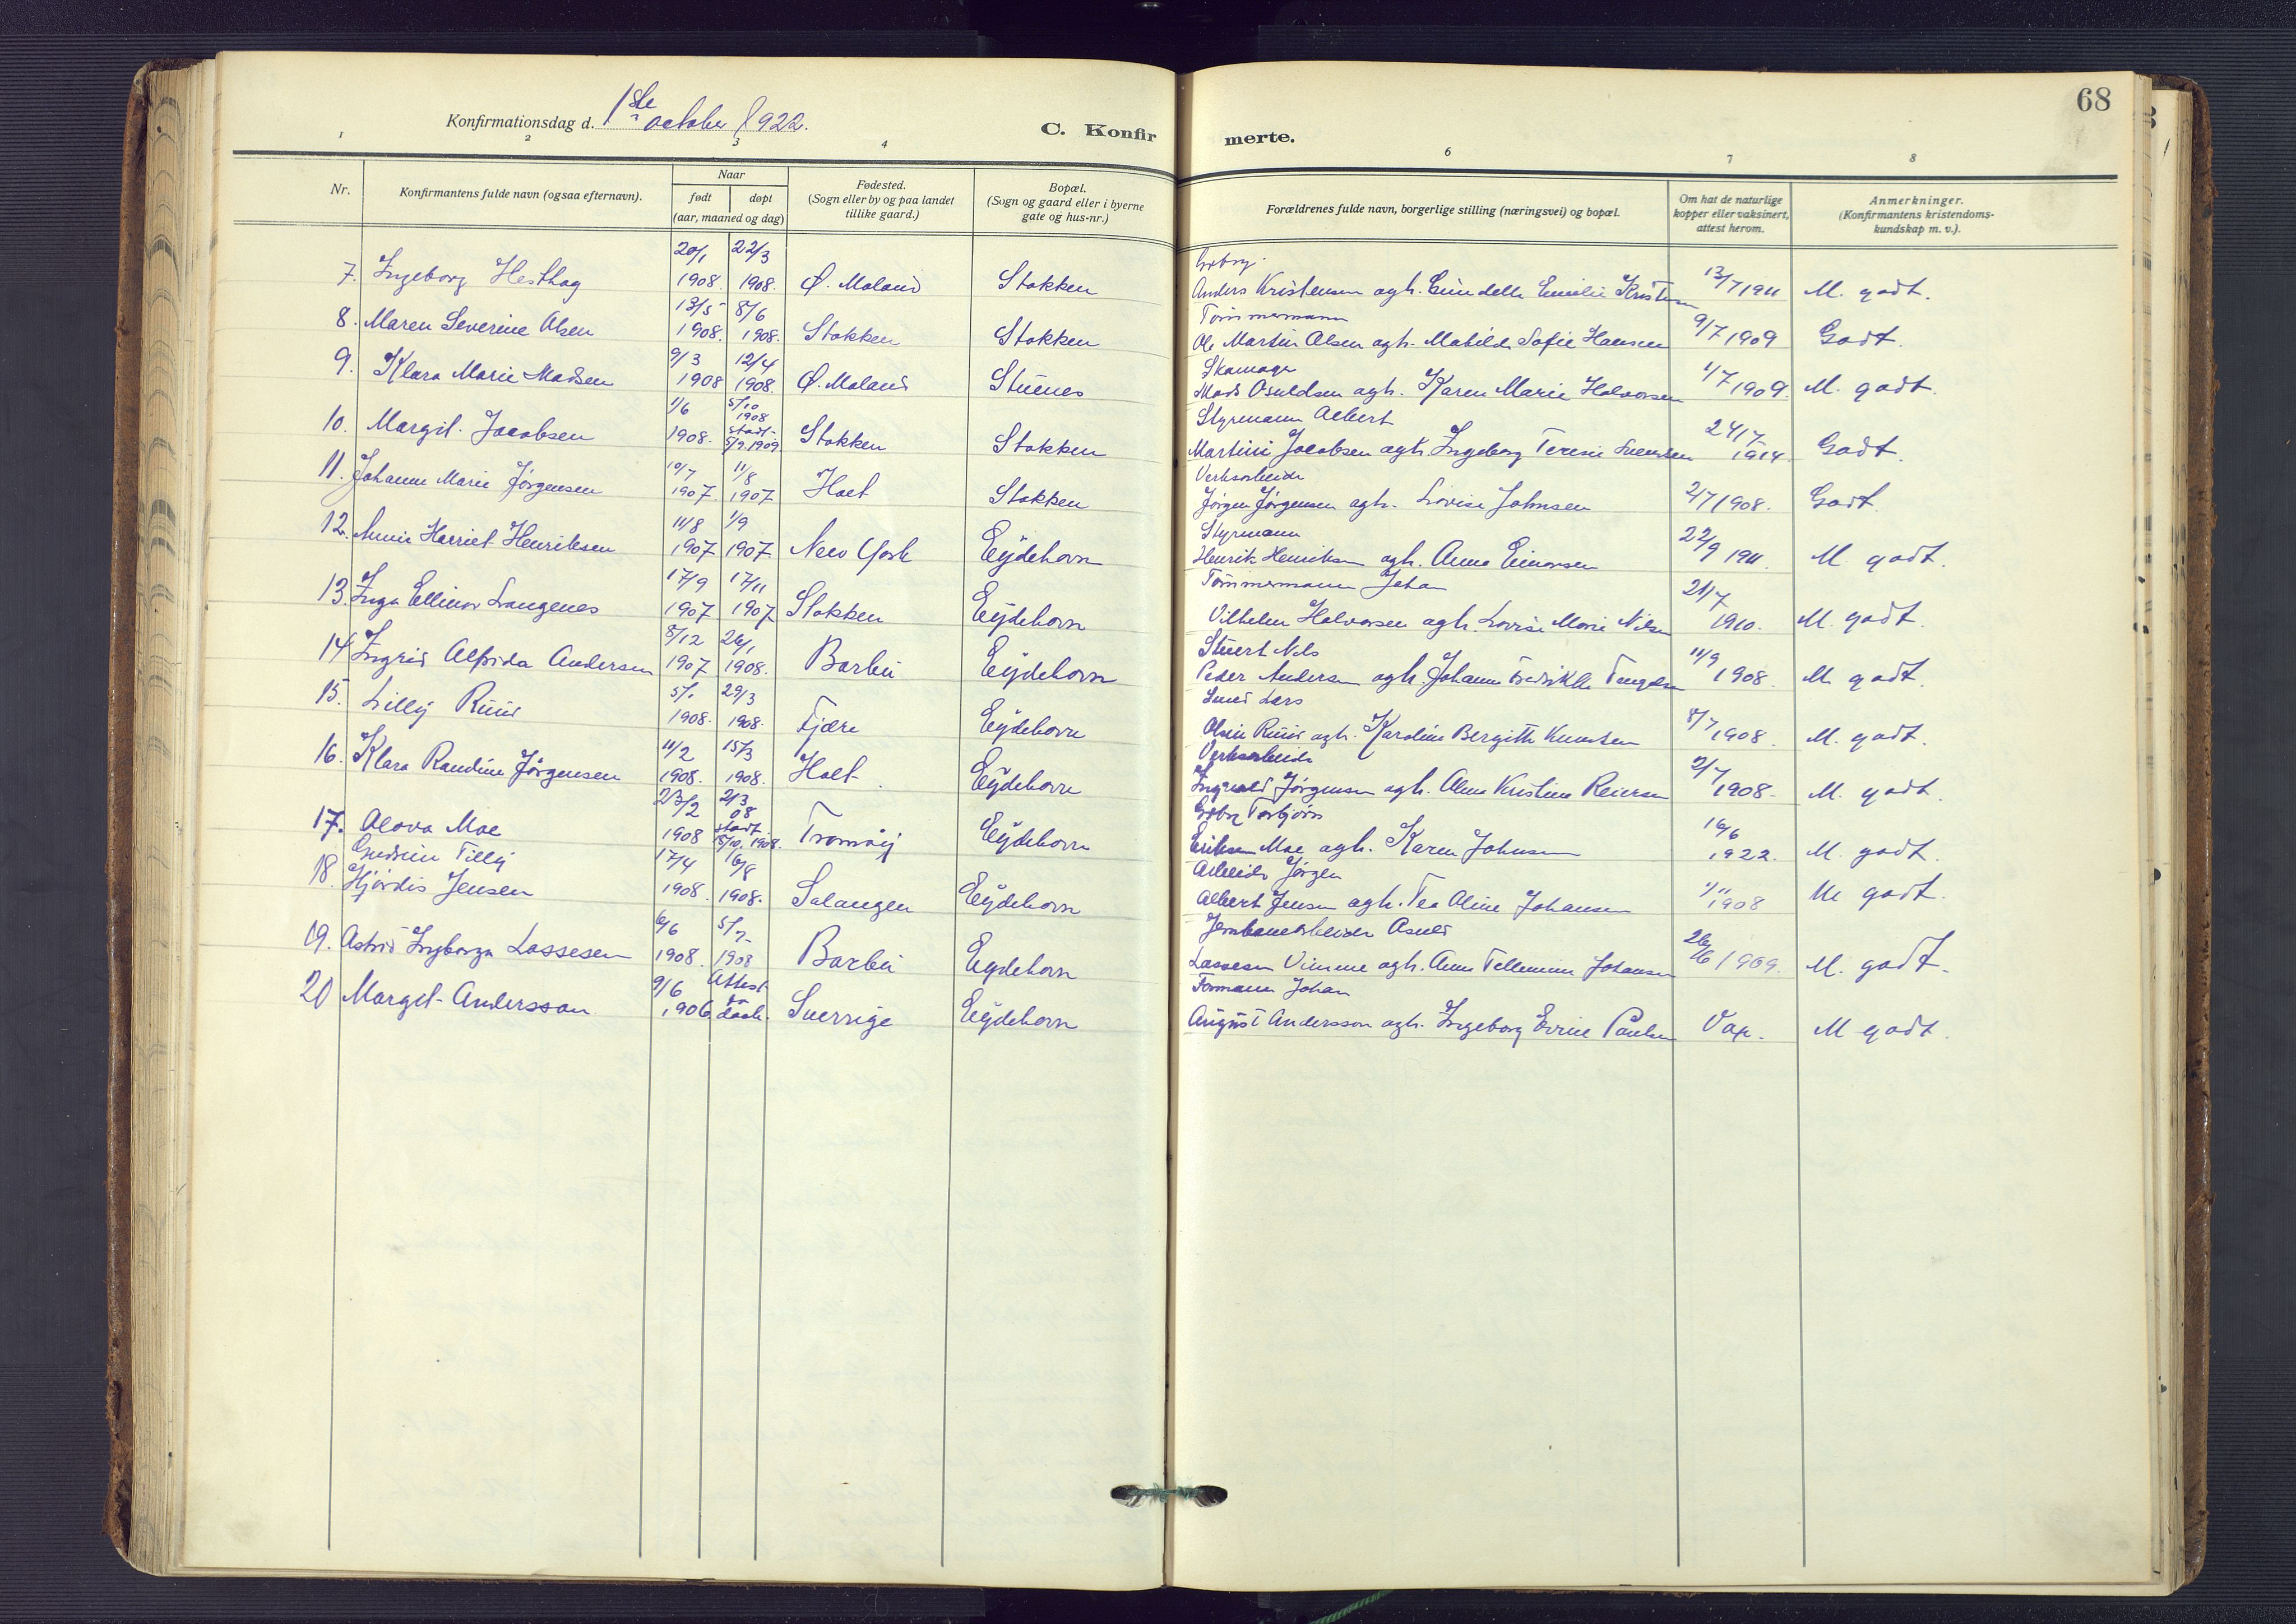 68
Konfirmationsdag d. 1ste october 1922.
C. Konfir merte.
1 2 3 4 6 7 8
Nr. Konfirmantens fulde navn (ogsaa efternavn). Naar født døpt (aar, maaned og dag) Fødested. (Sogn eller by og paa landet tillike gaard.) Bopæl. (Sogn og gaard eller i byerne gate og hus-nr.) Forældrenes fulde navn, borgerlige stilling (næringsvei) og bopæl. Om hat de naturlige kopper eller vaksinert, attest herom. Anmerkninger. (Konfirmantens kristendoms-kundskap m. v.).
20/1 22/3 Grbrg.
7. Ingeborg Hesthag 1908. 1908. Ø. Moland Stokken Anders Kristensen ogh. Gundelle Emilie Kristensen 13/7 1911 M. godt.
13/5 8/6 Tømmermann
8. Maren Severine Olsen 1908. 1908. Stokken Stokken Ole Martin Olsen ogh. Matilde Sofie Hansen 9/7 1909 Godt.
9/3 12/4 Skomager
9. Klara Marie Madsen 1908 1908. Ø. Moland Stuenes Mads Osuldsen ogh. Karen Marie Halvorsen 1/7 1909. M. godt.
1/6 5/10 1908 Styrmann Albert
10. Margit Jacobsen 1908. stadf. 5/9 1909 Stokken Stokken Martin Jacobsen ogh. Ingeborg Teresie Svendsen 24/7 1914 Godt.
10/7 11/8 Verksarbeider
11. Johanne Marie Jørgensen 1907 1907 Holt Stokken Jørgen Jørgensen ogh. Lovise Johnsen 2/7 1908. Godt.
11/8 1/9 Styrmann
12. Annie Harriet Henriksen 1907 1907 New York Eydehavn Henrik Henriksen ogh. Anna Einarsen 22/9 1911. M godt.
17/9 17/11 Tømmermann Johan
13. Inga Ellinor Langenes 1907 1907 Stokken Eydehavn Vilhelm Halvorsen ogh. Lovise Marie Nilsen 21/7 1910. M. godt.
8/12 26/1 Stuert Nils
14 Ingrid Alfrida Andersen 1907 1908. Barbu Eydehavn Peder Andersen ogh. Johanne Fredrikke 11/9 1908. M. godt.
5/1 29/3 Smed Lars
15. Lilly Ruud 1908. 1908. Fjære Eydehavn Ruud ogh. Karoline Bergitte Knudsen 8/7 1908. M. godt.
11/2 15/3 Verksarbeider
16. Klara Randine Jørgensen 1908. 1908. Holt Eydehavn Ingvald Jørgensen ogh. Alma Kristine Reiersen 2/7 1908. M. godt.
23/2 2/3 08 Grbrg Torbjørn
17. Olava Moe 1908 stadf. 18/10 1908. Tromøy Eydehavn Eriksen Moe ogh. Karen Johnsen 16/6 1922. M. godt.
Gudrun Tilly 17/4 16/8 Arbeider Jørgen
18. Hjørdis Jensen 1908. 1908. Salangen Eydehavn Albert Jensen ogh. Tea Oline Johansen 1/11 1908 M godt.
6/6 5/7 Jernbanearbeider
19. Astrid Ingborga Lassesen 1908. 1908 Barbu Eydehavn Lassesen Vimme ogh. Anne Johansen 26/6 1909. M. godt.
9/6 Attest Formann Johan
20 Margit Andersson 1906 på daab. Sverrige Eydehavn August Andersson ogh. Ingeborg Paulsen Vax. M godt.